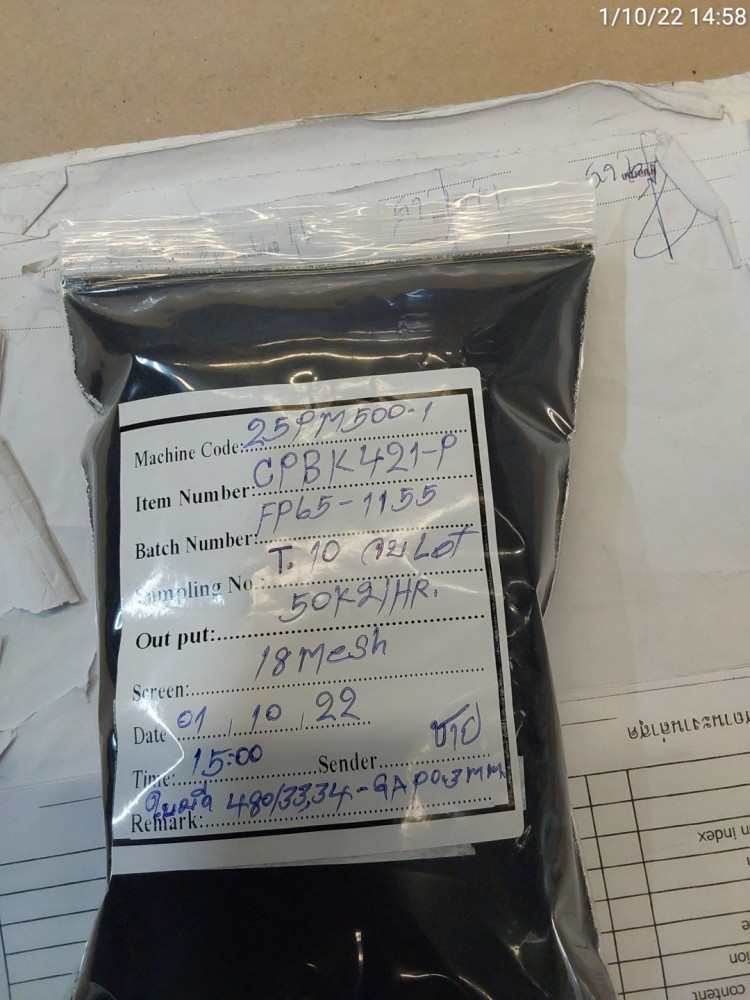 1/10/22 14:58
Machine Code: 25PM500-1
Item Number: CPBK421-P
Batch Number: FP65-1155
Sampling No.: T. 10 Lot
Out put: 50Kg/HR.
Screen: 18 Mesh
Date 01 / 10 / 22
Time: 15:00 Sender ชาย
Remark: ใบมีด 480/33,34-GAP0.3mm
n index
content